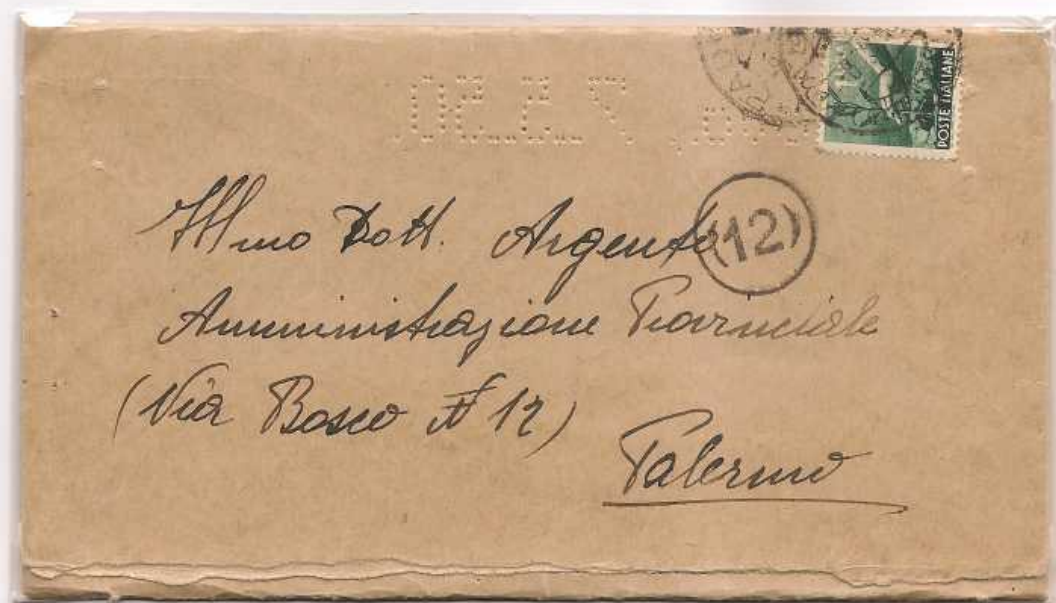 POSTE ITALIANE
(12)
Ill mo Dott. Argento
Amministrazione Provinciale
(Via Bosco N 12)
Palermo